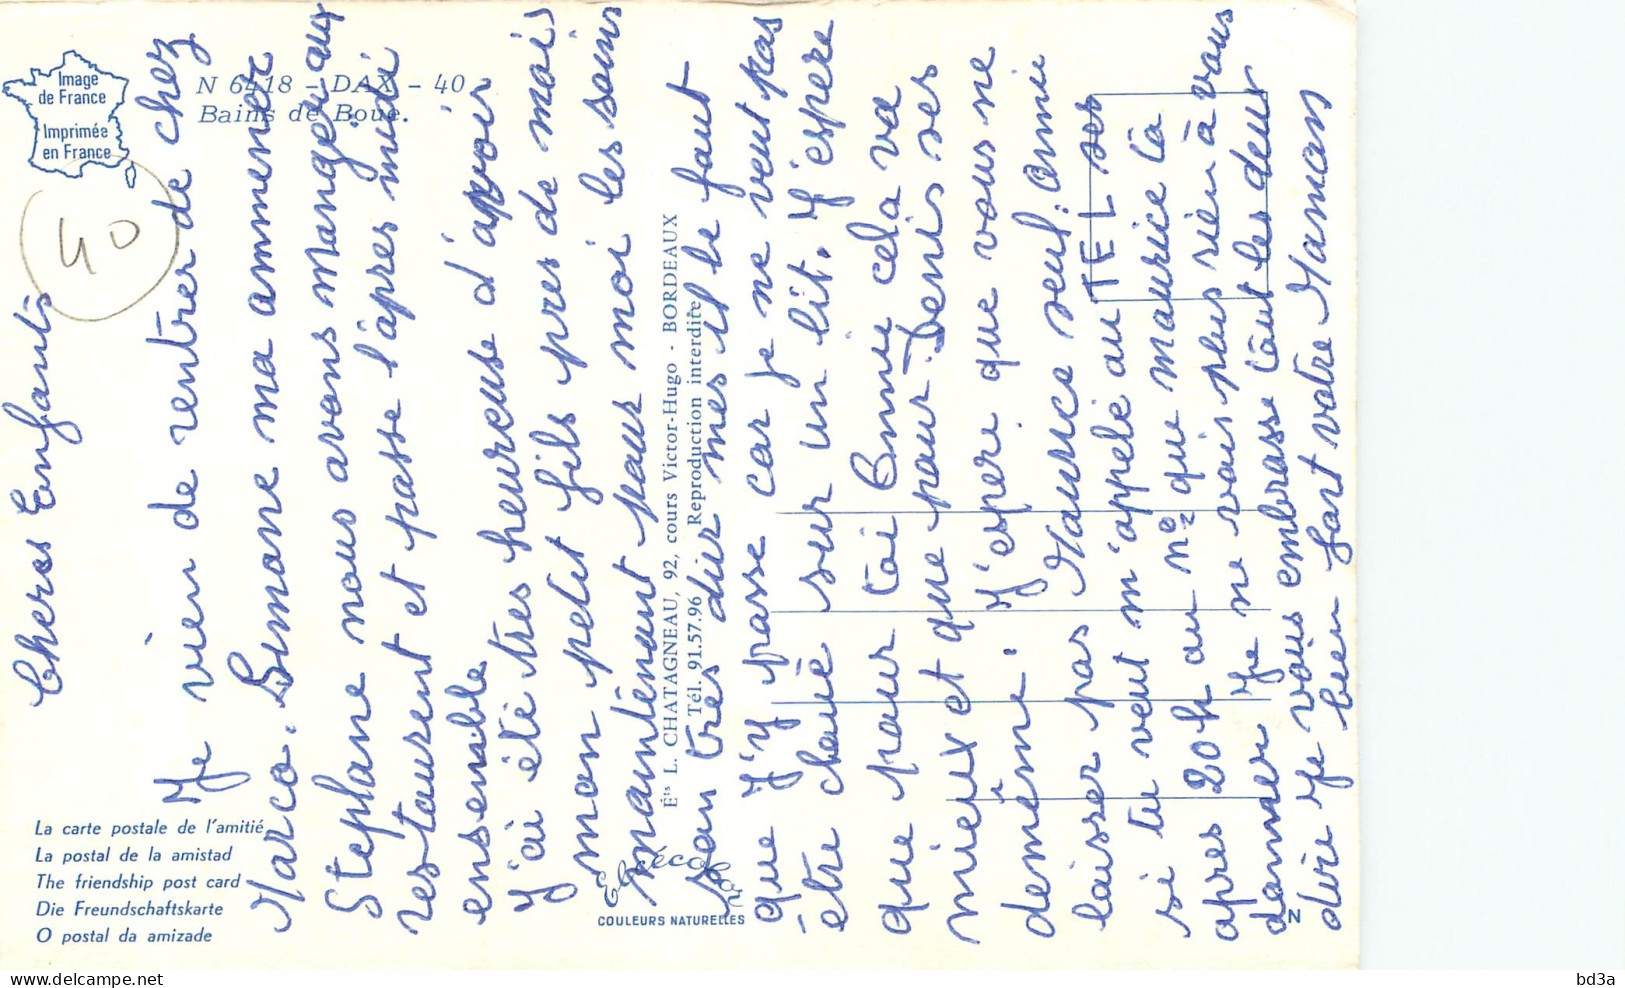 Image
de France
Imprimée
en France
N 6418 - DAX - 40
Bains de Boue.
40
La carte postale de l'amitié
La postal de la amistad
The friendship post card
Die Freundschaftskarte
O postal da amizade
COULEURS NATURELLES
Éts L. CHATAGNEAU, 92, cours Victor-Hugo - BORDEAUX
Tél. 91.57.96 Reproduction interdite
N
Chers Enfants
Je vien de rentrer de chez
Marco. Simone ma ammener
Stephane nous avons manger au
restaurent et passe l'apres midi
ensemble
J'ai été très heureuse d'avoir
mon petit fils pres de moi
maintenant pour moi les soins
son tres dur mes il le faut
que j'y passe car je ne veut pas
être cloué sur un lit. J'espere
que pour toi Emie cela va
mieux et que pour Denis ses
demême. J'espere que vous ne
laisser pas Maurice seul. Annie
si tu veut m'appelé au TEL ses
apres 20h au nº que maurice la
donner Je ne vois plus rien à vous
dire Je vous embrasse tout les deux
bien fort votre Maman
bd3a